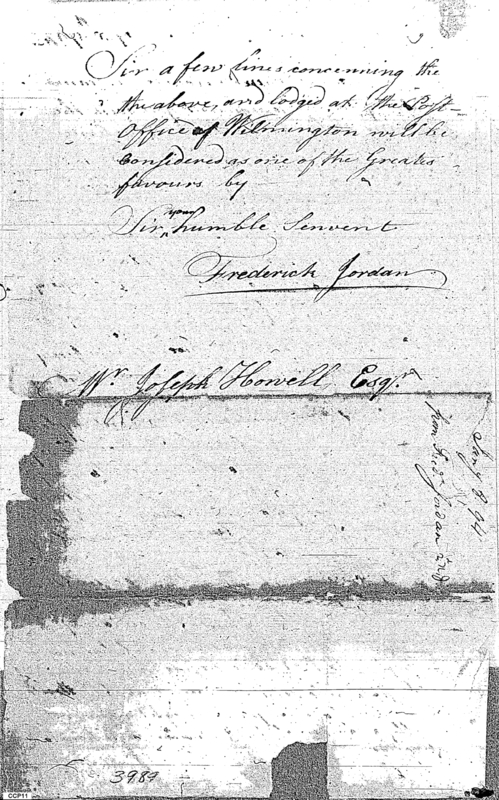 Sir a few lines concerning the
the above, and lodged at the Post
Office of Wilmington will be
Considered as one of the Greates
favours by
Sir, your humble Servent
Frederick Jordan
Mr. Joseph Howell, Esqr.
Jany 2 94
from Fredk Jordan
3989
CCP11